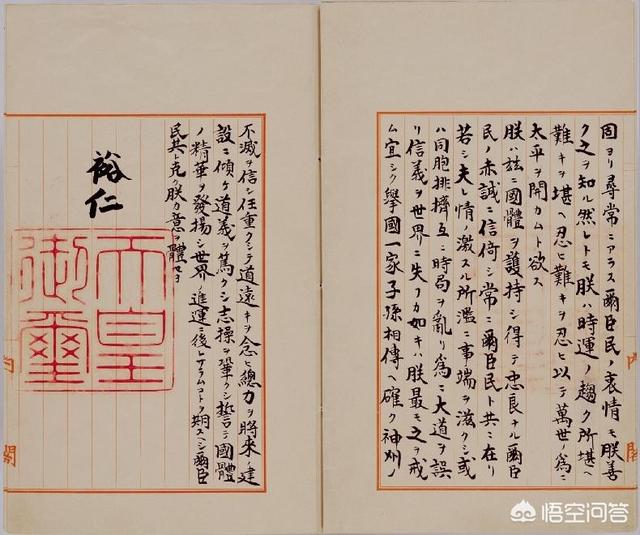 固ヨリ尋常ニアラス爾臣民ノ衷情モ朕善
ク之ヲ知ル然レトモ朕ハ時運ノ趨ク所堪ヘ
難キヲ堪ヘ忍ヒ難キヲ忍ヒ以テ萬世ノ爲ニ
太平ヲ開カムト欲ス
朕ハ茲ニ國體ヲ護持シ得テ忠良ナル爾臣
民ノ赤誠ニ信倚シ常ニ爾臣民ト共ニ在リ
若シ夫レ情ノ激スル所濫ニ事端ヲ滋クシ或
ハ同胞排擠互ニ時局ヲ亂リ爲ニ大道ヲ誤
リ信義ヲ世界ニ失フカ如キハ朕最モ之ヲ戒
ム宜シク擧國一家子孫相傳ヘ確ク神州ノ
不滅ヲ信シ任重クシテ道遠キヲ念ヒ總力ヲ將來ノ建
設ニ傾ケ道義ヲ篤クシ志操ヲ鞏クシ誓テ國體
ノ精華ヲ發揚シ世界ノ進運ニ後レサラムコトヲ期スヘシ爾臣
民其レ克ク朕カ意ヲ體セヨ
裕仁
天皇
御璽
悟空问答